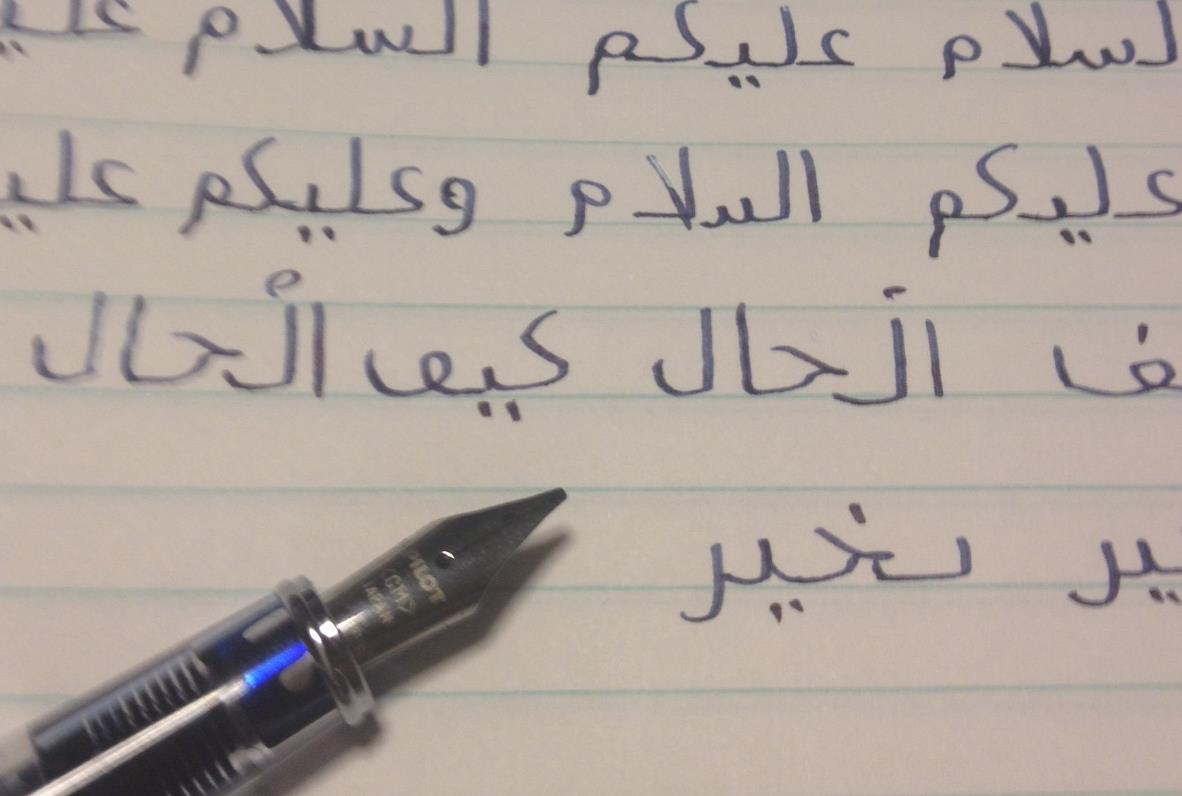 لسلام عليكم السلام عليـ
عليكم السلام وعليكم عليـ
ـف الْحال كيف الْحال
ـير بخير
PILOT
<CM>
JAPAN